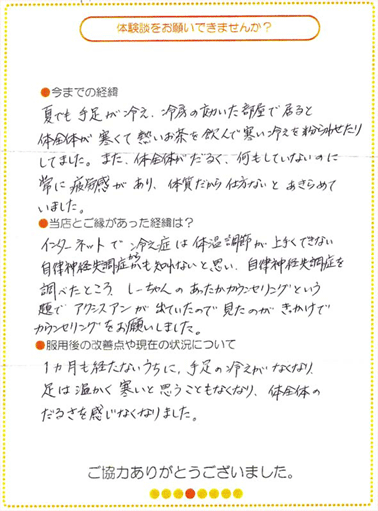 体験談をお願いできませんか？
●今までの経緯
夏でも手足が冷え、冷房の効いた部屋で居ると
体全体が寒くて熱いお茶を飲んで寒い冷えを紛らわせたり
してました。また、体全体がだるく、何もしていないのに
常に疲労感があり、体質だから仕方ないとあきらめて
いました。
●当店とご縁があった経緯は？
インターネットで冷え症は体温調節が上手くできない
自律神経失調症からかも知れないと思い、自律神経失調症を
調べたところ、しーちゃんのあたたかカウンセリングという
題でアクシスアンが出ていたので見たのがきっかけで
カウンセリングをお願いしました。
●服用後の改善点や現在の状況について
1カ月も経たないうちに、手足の冷えがなくなり
足は温かく寒いと思うこともなくなり、体全体の
だるさを感じなくなりました。
ご協力ありがとうございました。